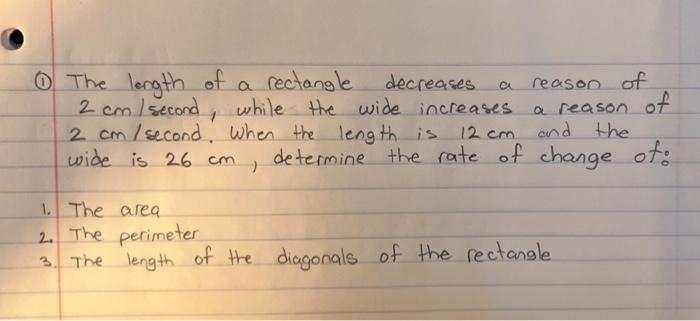 ① The length of a rectangle decreases a reason of
2 cm/second, while the wide increases a reason of
2 cm/second. When the length is 12 cm and the
wide is 26 cm, determine the rate of change of:
1. The area
2. The perimeter
3. The length of the diagonals of the rectangle